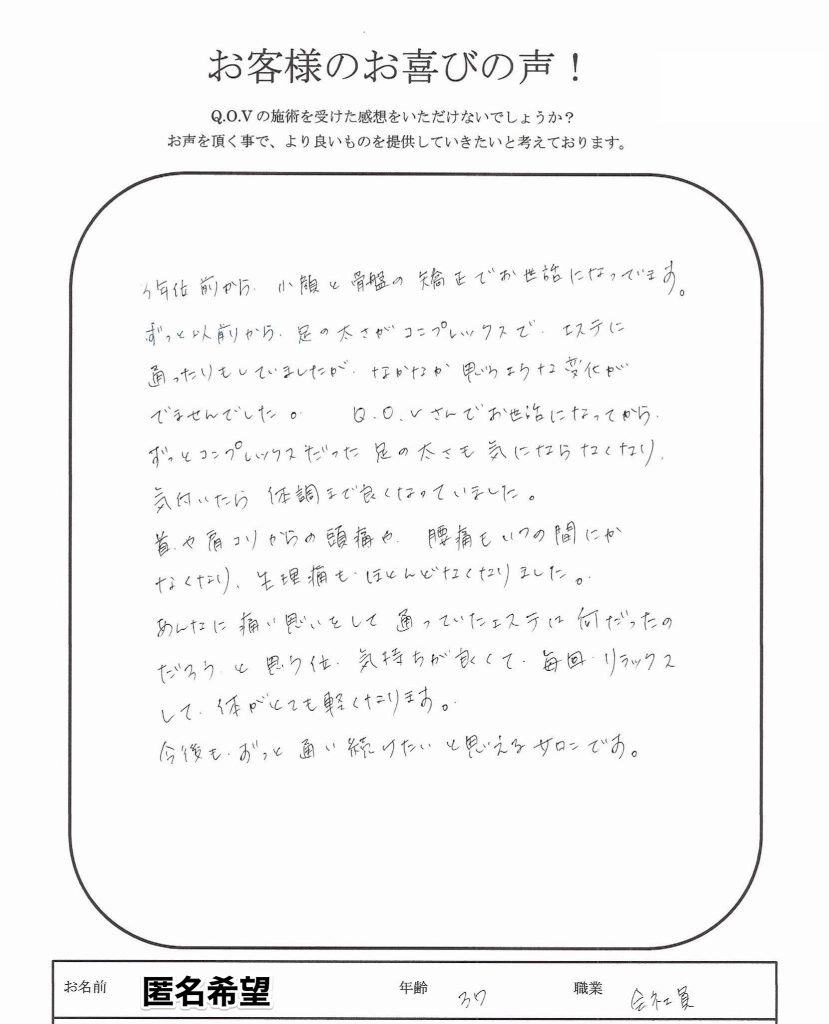 お客様のお喜びの声！
Q.O.Vの施術を受けた感想をいただけないでしょうか？
お声を頂く事で、より良いものを提供していきたいと考えております。
年位前から、小顔と骨盤の矯正でお世話になってます。
ずっと以前から、足の太さがコンプレックスで、エステに
通ったりもしていましたが、なかなか思うような変化が
でませんでした。 Q.O.Vさんでお世話になってから、
ずっとコンプレックスだった足の太さも気にならなくなり、
気付いたら体調まで良くなっていました。
首や肩コリからの頭痛や、腰痛もいつの間にか
なくなり、生理痛もほとんどなくなりました。
あんなに痛い思いをして通っていたエステは何だったの
だろうと思う位、気持ちが良くて、毎回リラックス
して、体がとても軽くなります。
今後も、ずっと通い続けたいと思えるサロンです。
お名前 匿名希望 年齢 37 職業 会社員